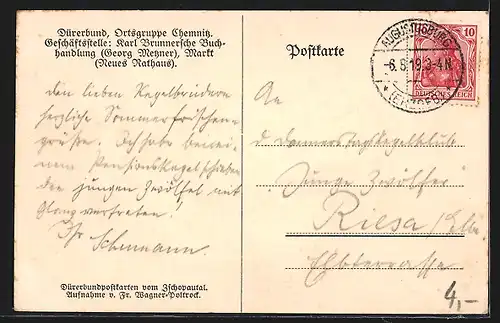 Dürerbund, Ortsgruppe Chemnitz.
Geschäftsstelle: Karl Brunnersche Buch-
handlung (Georg Metzner), Markt
(Neues Rathaus).
den lieben Kegelbrüdern
herzliche Sommerfrischen-
grüße. Ich habe bei
einem Pensionskegelschieben
die jungen Zwölfer mit
Glanz vertreten.
Ihr Schumann.
Dürerbundpostkarten vom Zschopautal.
Aufnahme v. Fr. Wagner-Poltrock.
Postkarte
AUGUSTUSBURG
(ERZGEB.)
10
DEUTSCHES REICH
An
d. Donnerstagskegelklub
Junge Zwölfer
Riesa / Elbe
Elbterrasse
4,-